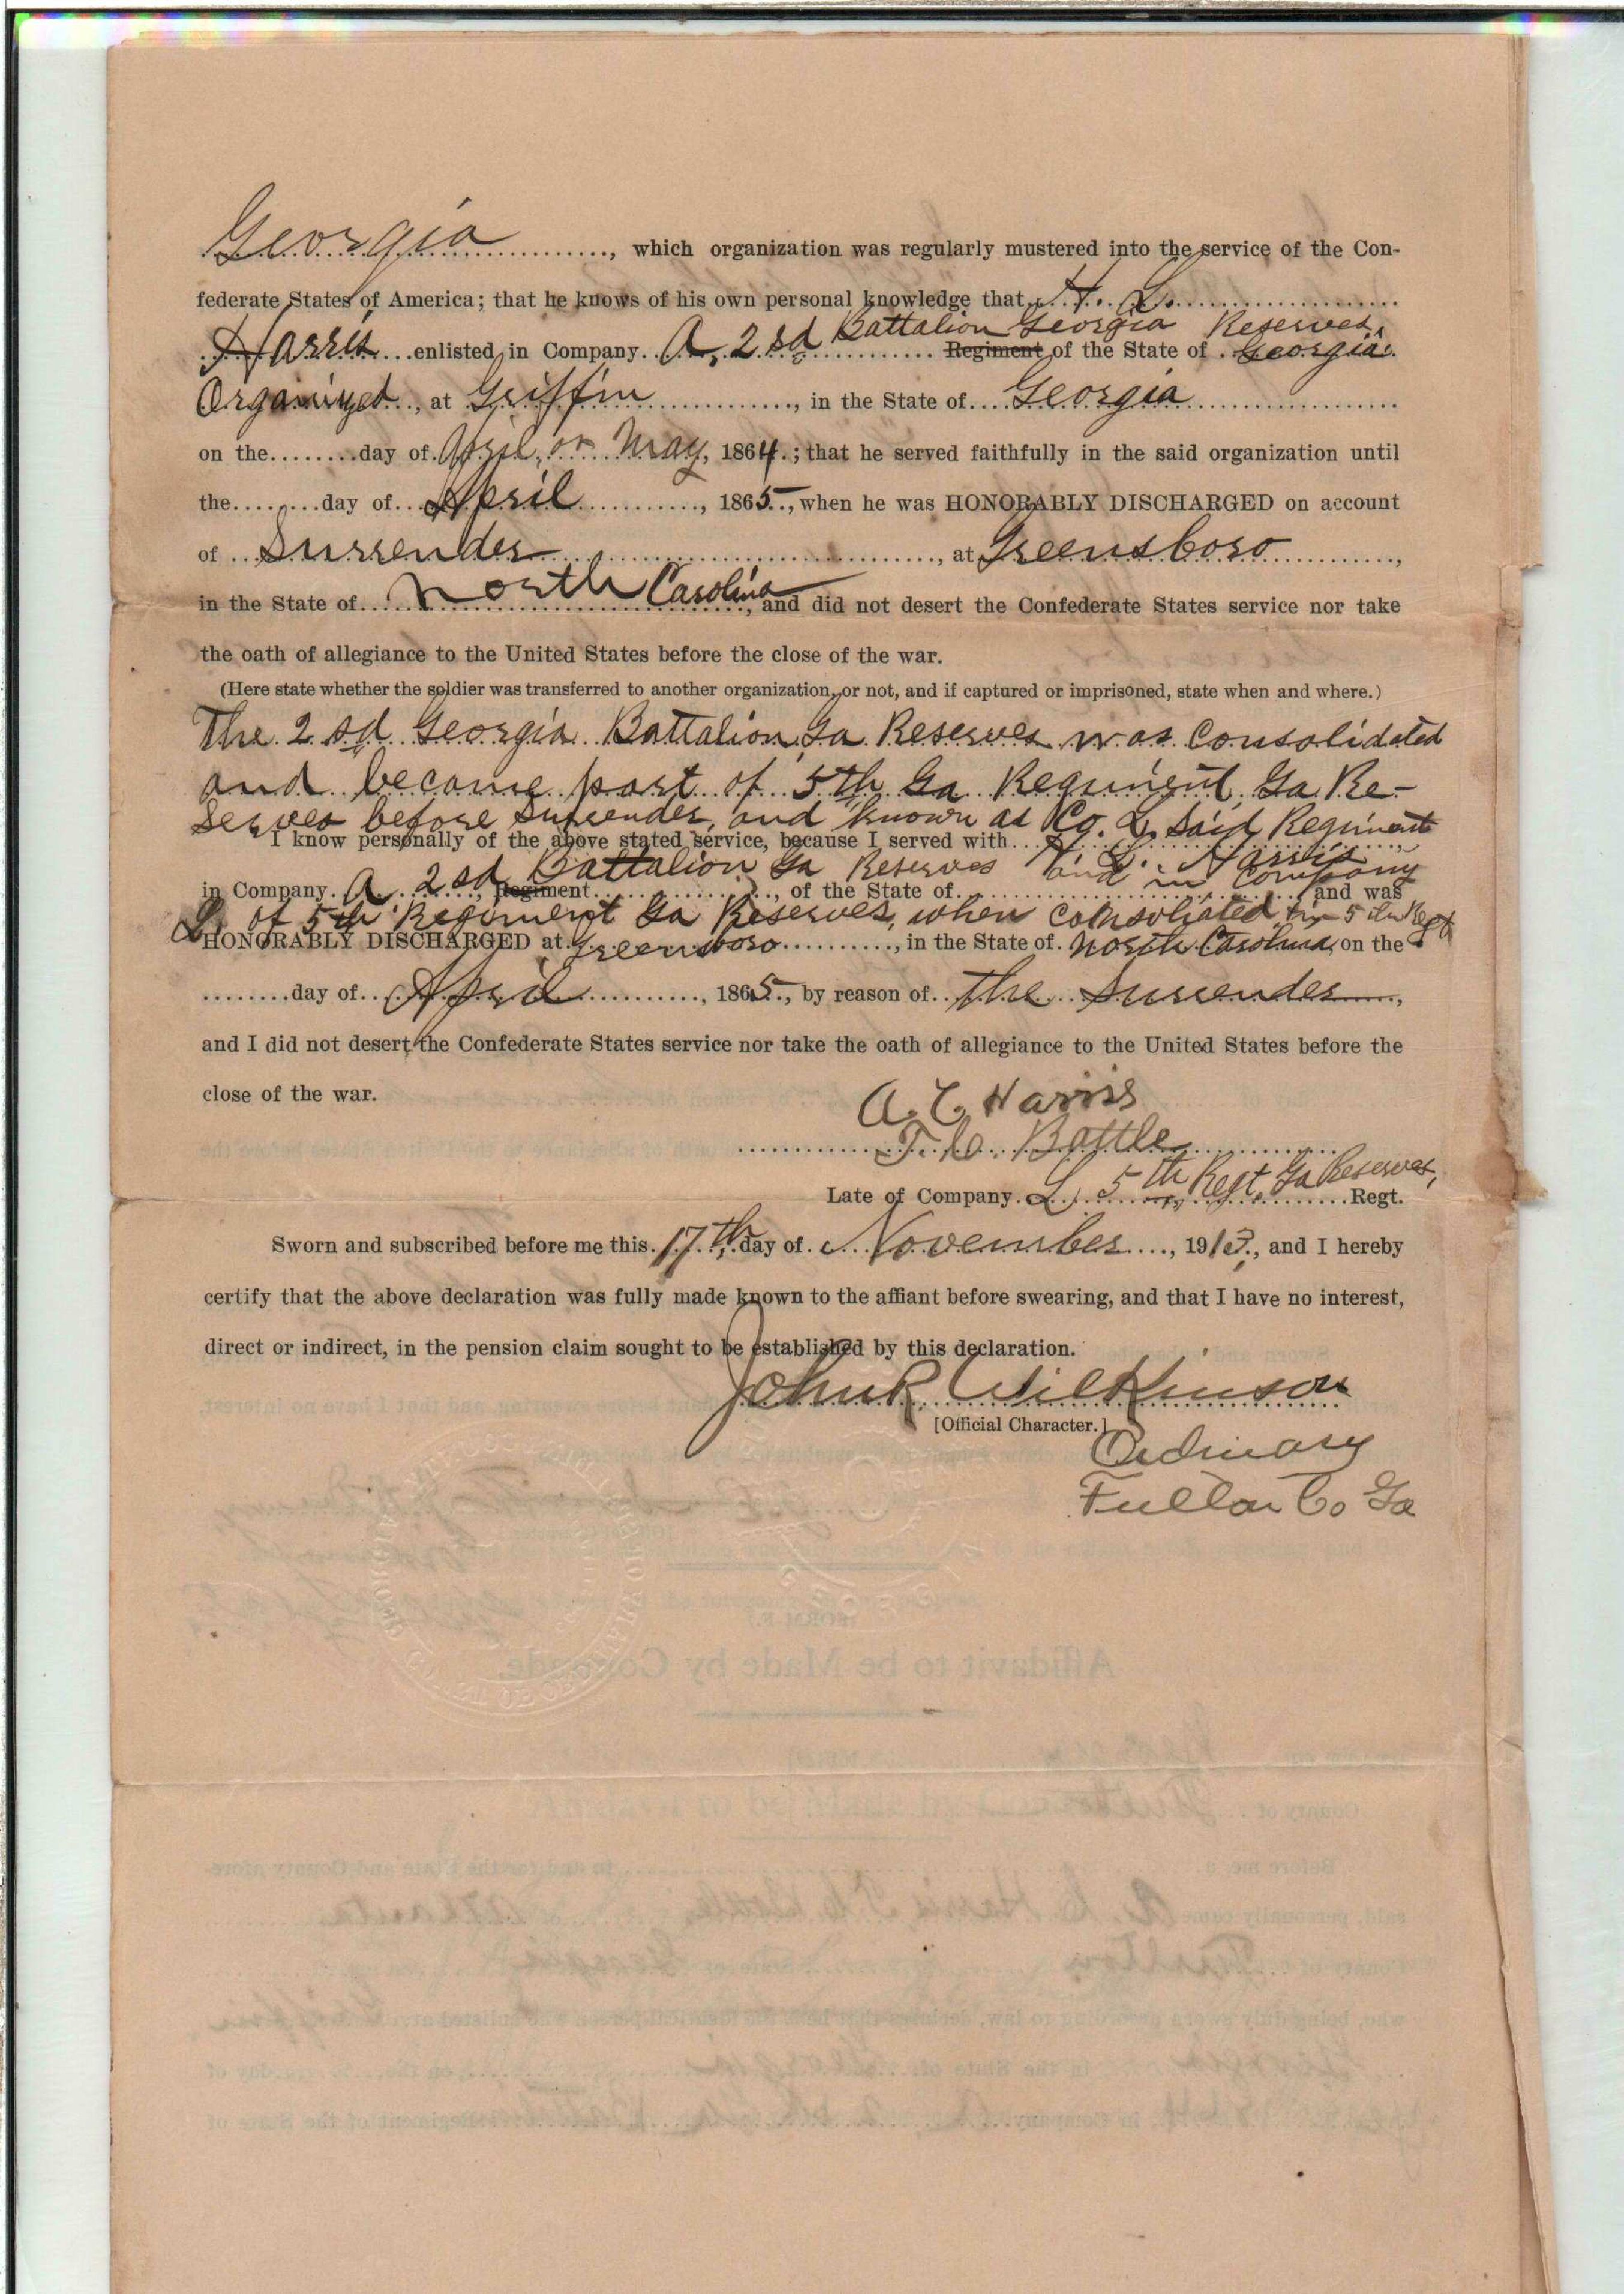 Georgia, which organization was regularly mustered into the service of the Con-
federate States of America; that he knows of his own personal knowledge that H. L.
Battalion Georgia Reserves,
Harris enlisted in Company A, 2sd Regiment of the State of Georgia.
Organized, at Griffin, in the State of Georgia
on the day of April, or May, 1864.; that he served faithfully in the said organization until
the day of April, 1865., when he was HONORABLY DISCHARGED on account
of Surrender, at Greensboro,
in the State of North Carolina, and did not desert the Confederate States service nor take
the oath of allegiance to the United States before the close of the war.
(Here state whether the soldier was transferred to another organization, or not, and if captured or imprisoned, state when and where.)
The 2sd Georgia Battalion, Ga Reserves was Consolidated
and became part of 5th Ga Regiment, Ga Re-
serves before surrender, and known as Co. L, said Regiment
I know personally of the above stated service, because I served with H. L. Harris,
Battalion Ga Reserves and in Company
in Company A 2sd, Regiment, of the State of and was
L of 5th Regiment Ga Reserves, when consoliated in 5th Regt
HONORABLY DISCHARGED at Greensboro, in the State of North Carolina, on the
day of April, 1865., by reason of the Surrender,
and I did not desert the Confederate States service nor take the oath of allegiance to the United States before the
close of the war.
A. C. Harris
T. C. Battle
Late of Company L, 5th Regt, Ga Reserves, Regt.
Sworn and subscribed before me this 17th, day of November, 1913., and I hereby
certify that the above declaration was fully made known to the affiant before swearing, and that I have no interest,
direct or indirect, in the pension claim sought to be established by this declaration.
John R. Wilkinson
[Official Character.]
Ordinary
Fulton Co Ga
Affidavit to be Made by Comrade